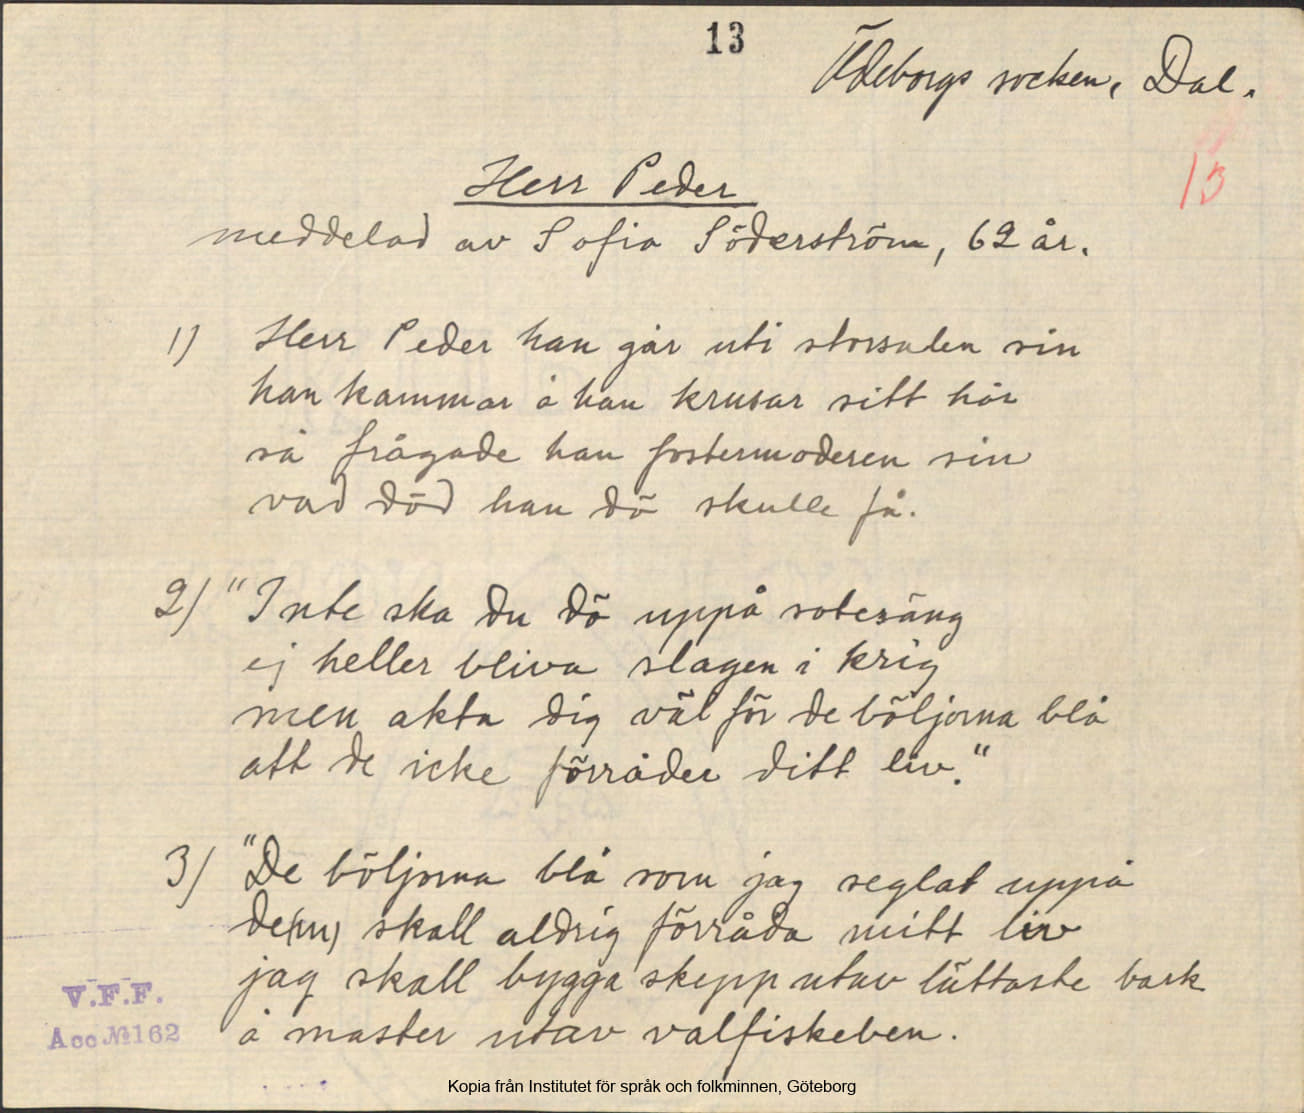 13
Ödeborgs socken, Dal.
13
Herr Peder
meddelad av Sofia Söderström, 62 år.
1) Herr Peder han går uti storsalen sin
han kammar å han krusar sitt hår
så frågade han fostermoderen sin
vad död han dö skulle få.
2) "Inte ska du dö uppå sotesäng
ej heller bliva slagen i krig
men akta dig väl för de böljorna blå
att de icke förråder ditt liv."
3) "De böljorna blå som jag seglat uppå
de(m) skall aldrig förråda mitt liv
jag skall bygga skepp utav lättaste bark
å master utav valfiskeben.
V.F.F.
Acc № 162
Kopia från Institutet för språk och folkminnen, Göteborg